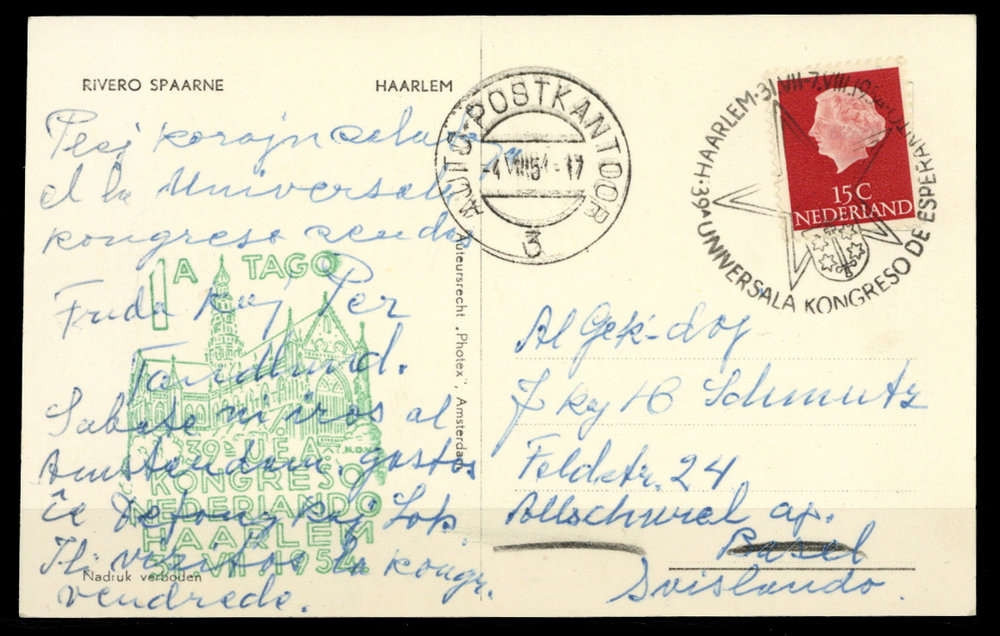 RIVERO SPAARNE HAARLEM
Plej korajn salu
el la Universala
kongreso sendas
Frida kaj Per
Sabate ni iros al
Amsterdam, gastos
ĉe DeJong kaj
Ili vizitos la kongr.
vendrede.
1A TAGO
39a U.E.A.
KONGRESO
NEDERLANDO
HAARLEM
VII 1954
Nadruk verboden
Auteursrecht „Photex", Amsterdam
AUTO-POSTKANTOOR
-4 VIII 54-17
3
39a UNIVERSALA KONGRESO DE ESPERANTO · HAARLEM · 31 VII-7 VIII 1954
15 C
NEDERLAND
Al Gek-doj
J kaj H Schmutz
Feldstr. 24
Allschwil ap.
Basel
Svislando